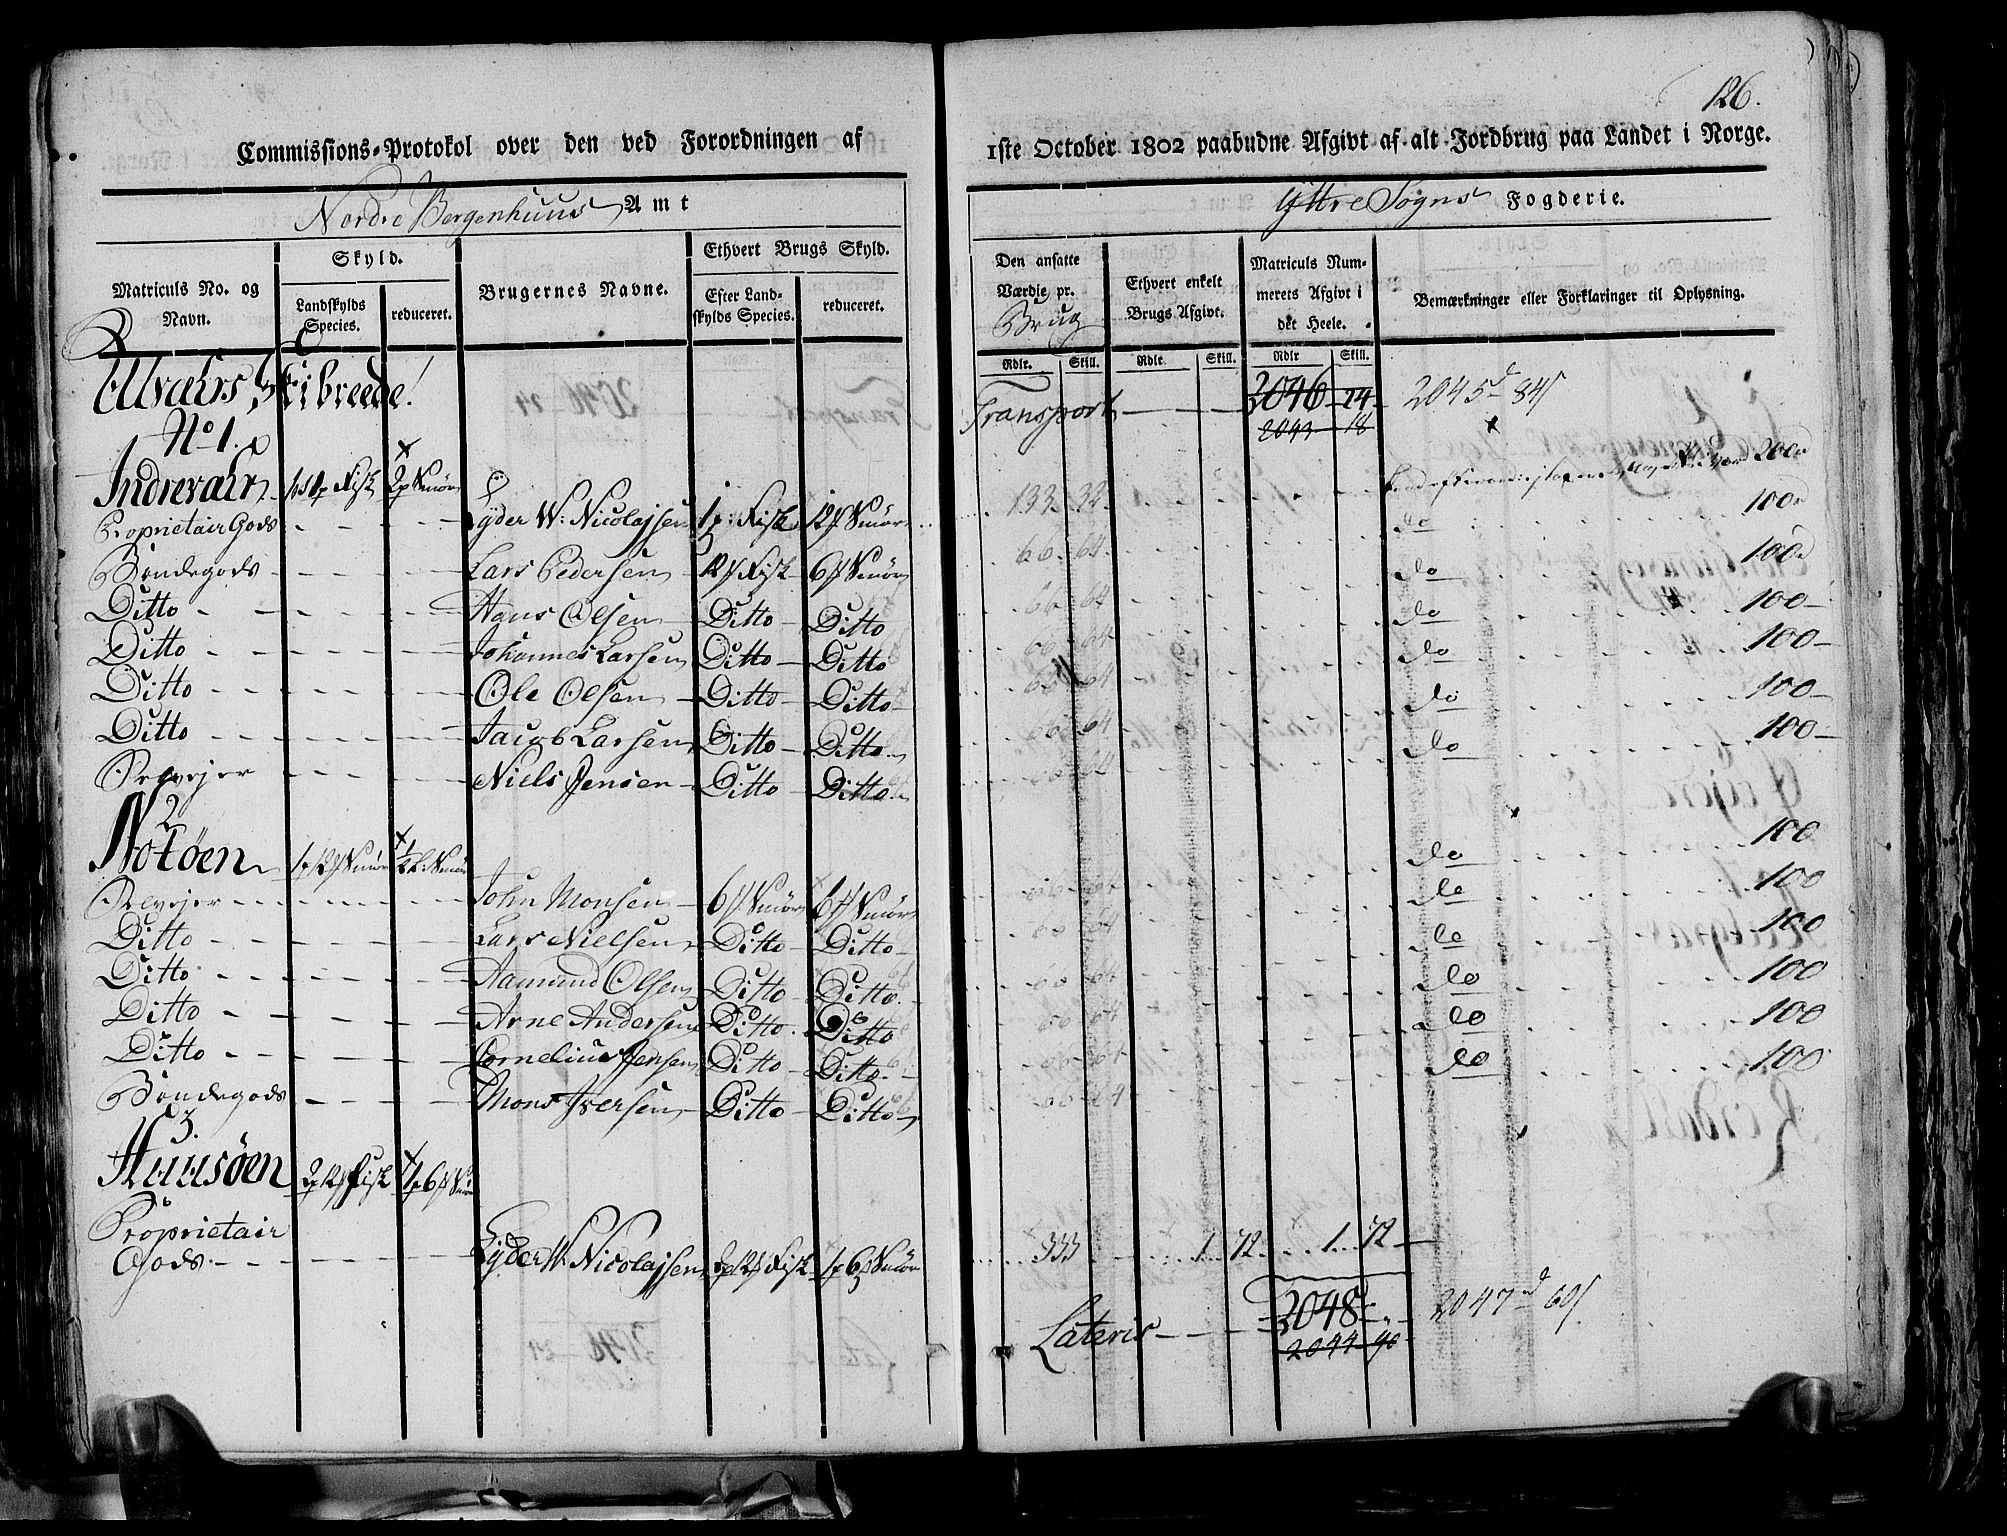 126.
Commissions-Protokol over den ved Forordningen af 1ste October 1802 paabudne Afgivt af alt Jordbrug paa Landet i Norge.
Nordre Bergenhuus Amt
Yttre Sogns Fogderie.
Matriculs No. og Navn.
Skyld.
Landskylds Species.
reduceret.
Brugernes Navne.
Ethvert Brugs Skyld.
Efter Landskylds Species.
reduceret.
Den ansatte Værdie pr. Brug
Ethvert enkelt Brugs Afgivt.
Matriculs Nummerets Afgivt i det Heele.
Bemærkninger eller Forklaringer til Oplysning.
Rdlr. Skill. Rdlr. Skill. Rdlr Skill.
Utvahrs Skibreede!
Transport 2046 24 2045 84
2043 18
No 1.
Indrevahr Fisk 2 Smör 200
Proprietair Gods Lyder W. Nicolajsen 1 Fisk 12 Smör 133 32 do 100
Böndegods Lars Pedersen 12 Fisk 6 Smör 66 64 do 100
Ditto Hans Olsen Ditto Ditto 66 64 do 100
Ditto Johannes Larsen Ditto Ditto 66 64 do 100
Ditto Ole Olsen Ditto Ditto 66 64 do 100
Ditto Jacob Larsen Ditto Ditto 66 64 do 100
Selvejer Niels Jensen Ditto Ditto 66 64
2
Notöen 1 12 Smör 1/2 Smör do 100
Selvejer John Monsen 6 Smör 6 Smör 66 64 do 100
Ditto Lars Nielsen Ditto Ditto 66 64 do 100
Ditto Aamund Olsen Ditto Ditto 66 64 do 100
Ditto Arne Andersen Ditto Ditto 66 64 do 100
Ditto Cornelius Jensen Ditto Ditto 66 64 do 100
Böndegods Mons Iversen Ditto Ditto 66 64
3.
Huusöen 2 12 Fisk 1 6 Smör
Proprietair
Gods Lyder W. Nicolajsen 2 12 Fisk 1 6 Smör 333 1 72 1 72
Lateris 2048 2047 60
2044 90